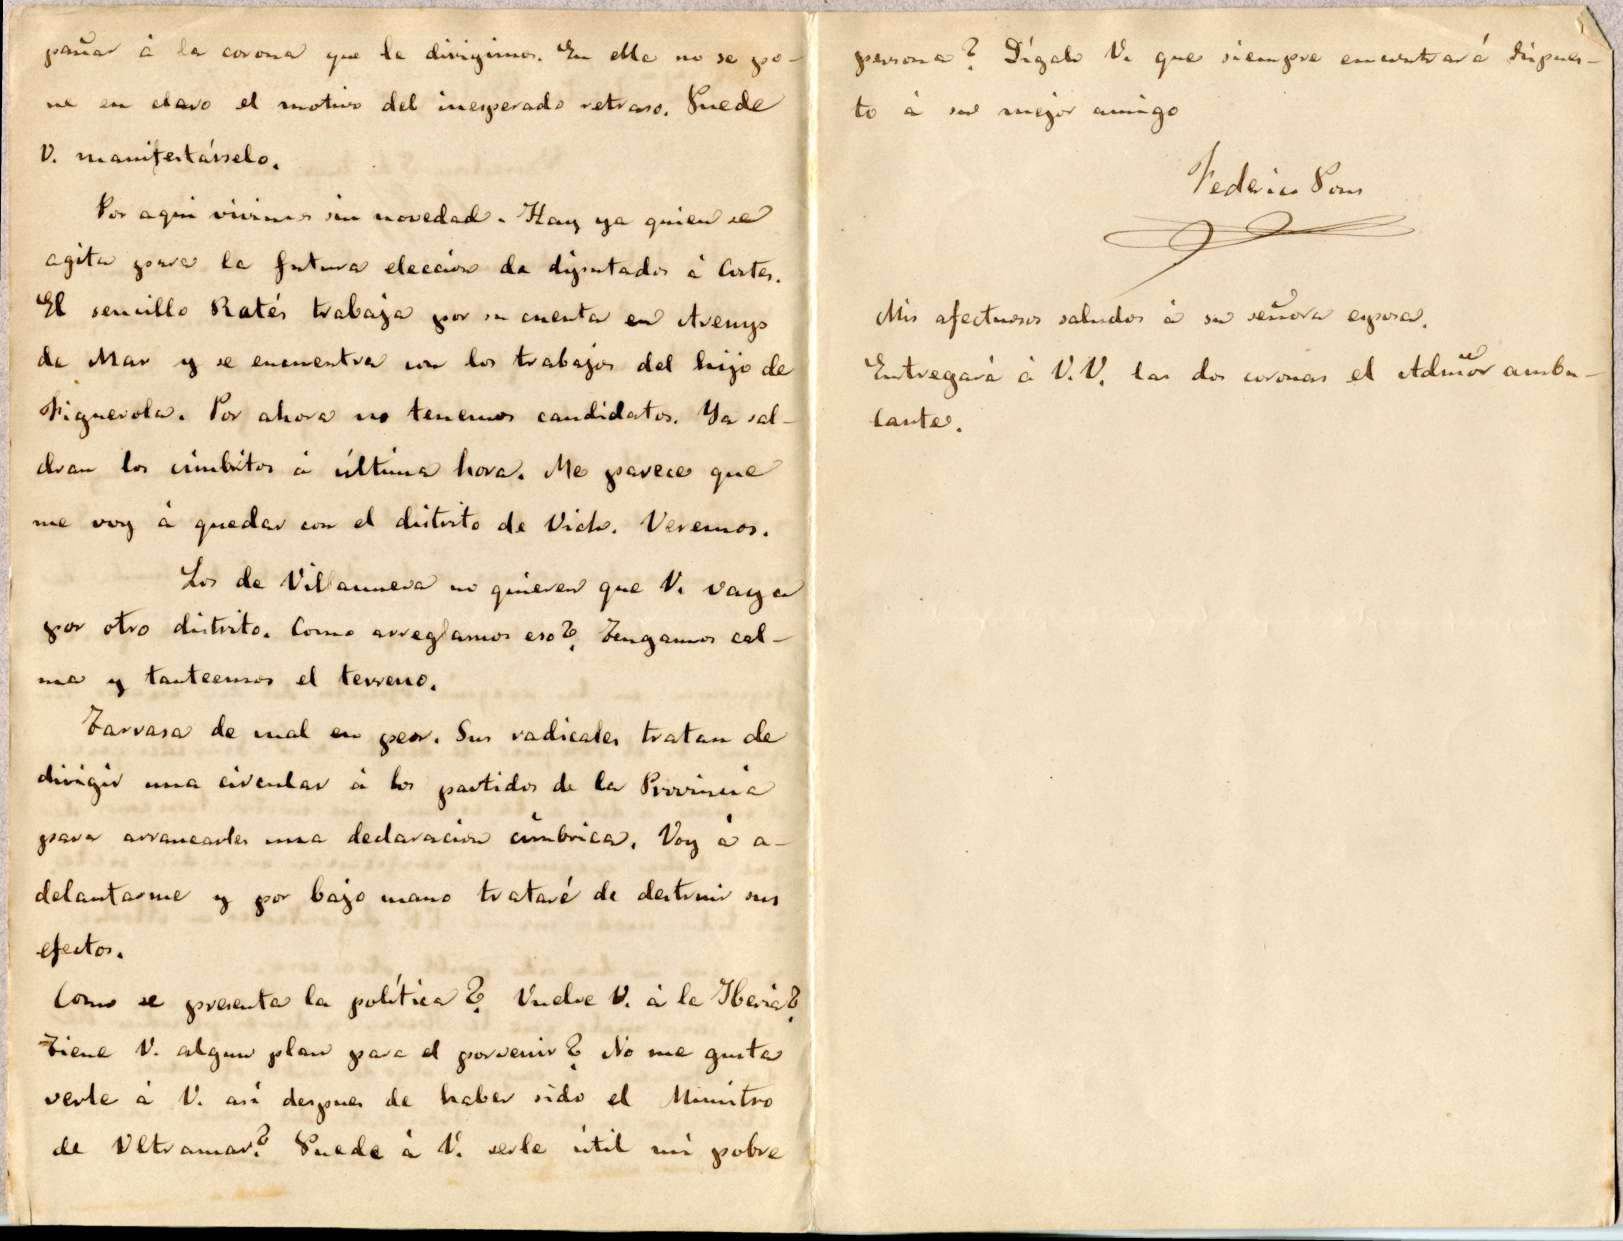 pañar á la corona que le dirigimos. En ella no se po-
ne en claro el motivo del inesperado retraso. Puede
V. manifestárselo.
Por aqui vivimos sin novedad. Hay ya quien se
agita para la futura eleccion de diputados á Cortes.
El sencillo Ratés trabaja por su cuenta en Arenys
de Mar y se encuentra con los trabajos del hijo de
Figuerola. Por ahora no tenemos candidatos. Ya sal-
dran los cimbritos á última hora. Me parece que
me voy á quedar con el distrito de Vich. Veremos.
Los de Villanueva no quieren que V. vaya
por otro distrito. Como arreglamos eso? Tengamos cal-
ma y tanteemos el terreno.
Tarrasa de mal en peor. Sus radicales tratan de
dirigir una circular á los partidos de la Provincia
para arrancarles una declaracion címbrica. Voy á a-
delantarme y por bajo mano trataré de destruir sus
efectos.
Como se presenta la política? Vuelve V. á la Iberia?
Tiene V. algun plan para el porvenir? No me gusta
verle á V. asi despues de haber sido el Ministro
de Ultramar? Puede á V. serle útil mi pobre
persona? Dígalo V. que siempre encontrará dispues-
to á su mejor amigo
Federico Pons
Mis afectuosos saludos á su señora esposa.
Entregará á V.V. las dos coronas el Admõr ambu-
lante.